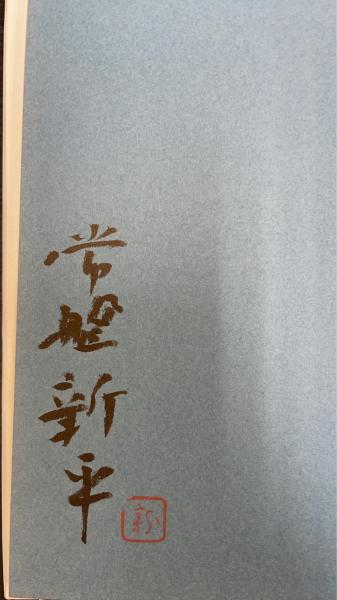 常盤新平
新